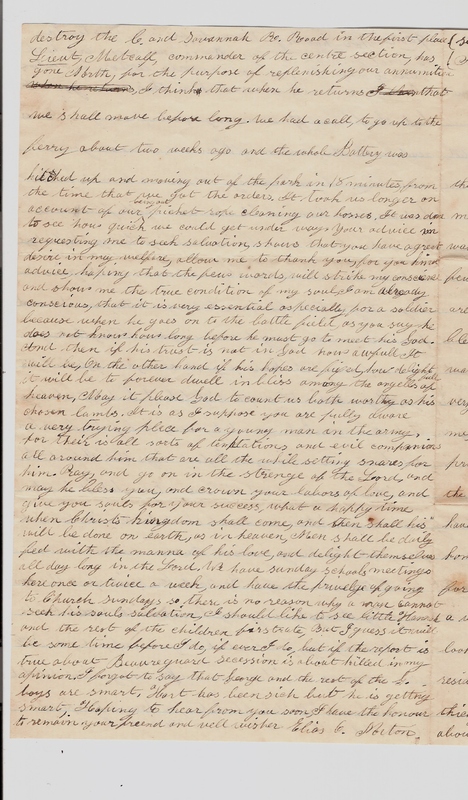 destroy the C, and Savannah Ro. Road in the first place
Lieut, Metcalf, commander of the centre section, has
gone North, for the purpose of replenishing our annunition
I think that when he returns that
we shall move before long. We had a call, to go up to the
ferry about two weeks ago and the whole Battery was
hitched up and moving out of the park in 15 minutes, from
the time that we got the orders. It took us longer on
account of our being at picket rope cleaning our horses. It was done
to see how quick we could get under way. Your advice in
requesting me to seek salvation, shows that you have a great
desire in my welfare, allow me to thank you, for you kind
advice, hoping that the few words, will strike my conscience
and show me the true condition of my soul, I am already
conscious, that it is very essential aspecially, for a soldier
because when he goes on to the battle field, as you say he
does not know how long before he must go to meet his God.
And then if his trust is not in God how awfull It
will be, On the other hand if his hopes are fixed, how delight
full it will be to forever dwell in bliss among the angells of
heaven, May it please God to count us both worthy as his
chosen lambs. It is as I suppose you are fully aware
a very trying place for a young man in the army,
for their is all sorts of temptations and evil companions
all around him that are all the while setting snares, for
him. Pray, and go on in the strenge of the Lord, and
may he bless you, and crown your labors of love, and
give you souls for your success, what a happy time
when Christs kingdom shall come, and then shall his
will be done on earth, as in heaven, Then shall be daily
fed with the manna of his love, and delight themselves
all day long in the Lord. We have sunday schools meetings
here once or twice a week, and have the privelige of going
to Church sundays so, there is no reason why a man cannot
seek his souls salvation, I should like to see little Hannah
and the rest of the children first rate, But I guess it will
be some time before I do, if ever I do, but if the report is
true about Beaureguard secession is about killed in my
opinion, I forgot to say that George and the rest of the L.
boys are smart, Hort has been sick but he is getting
smart, Hoping to hear from you soon, I have the honour
to remain your freend and well wisher Elias C. Norton.